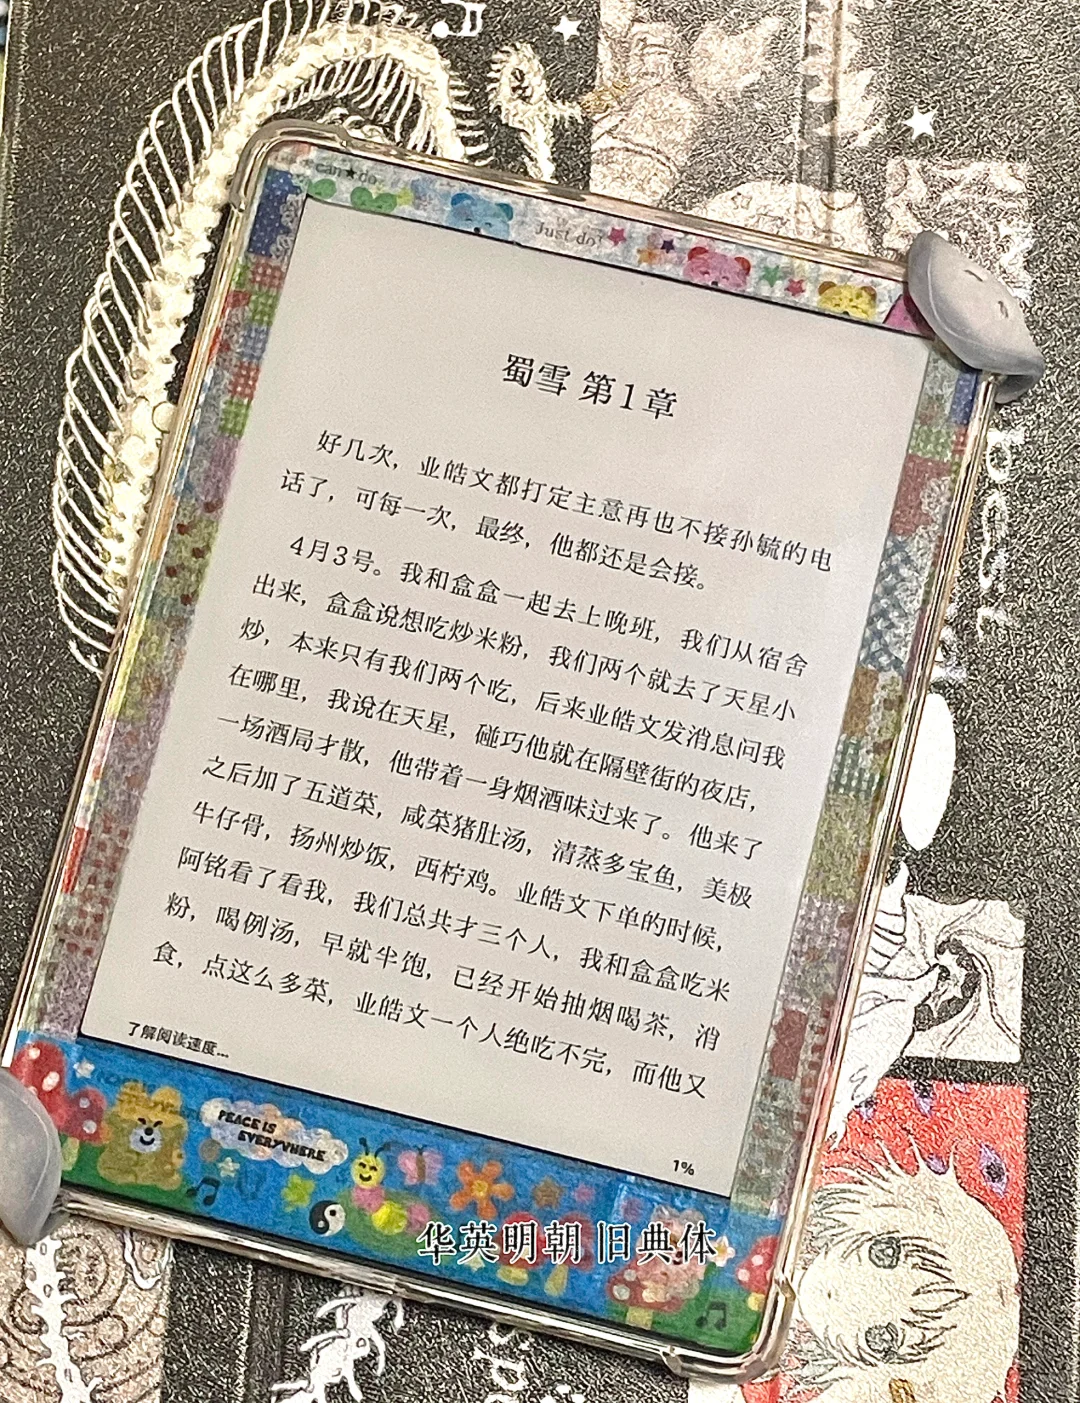 can★do
Just do!
蜀雪 第1章
好几次，业皓文都打定主意再也不接孙毓的电
话了，可每一次，最终，他都还是会接。
4月3号。我和盒盒一起去上晚班，我们从宿舍
出来，盒盒说想吃炒米粉，我们两个就去了天星小
炒，本来只有我们两个吃，后来业皓文发消息问我
在哪里，我说在天星，碰巧他就在隔壁街的夜店，
一场酒局才散，他带着一身烟酒味过来了。他来了
之后加了五道菜，咸菜猪肚汤，清蒸多宝鱼，美极
牛仔骨，扬州炒饭，西柠鸡。业皓文下单的时候，
阿铭看了看我，我们总共才三个人，我和盒盒吃米
粉，喝例汤，早就半饱，已经开始抽烟喝茶，消
食，点这么多菜，业皓文一个人绝吃不完，而他又
了解阅读速度...
1%
PEACE IS
EVERYWHERE
华英明朝 旧典体